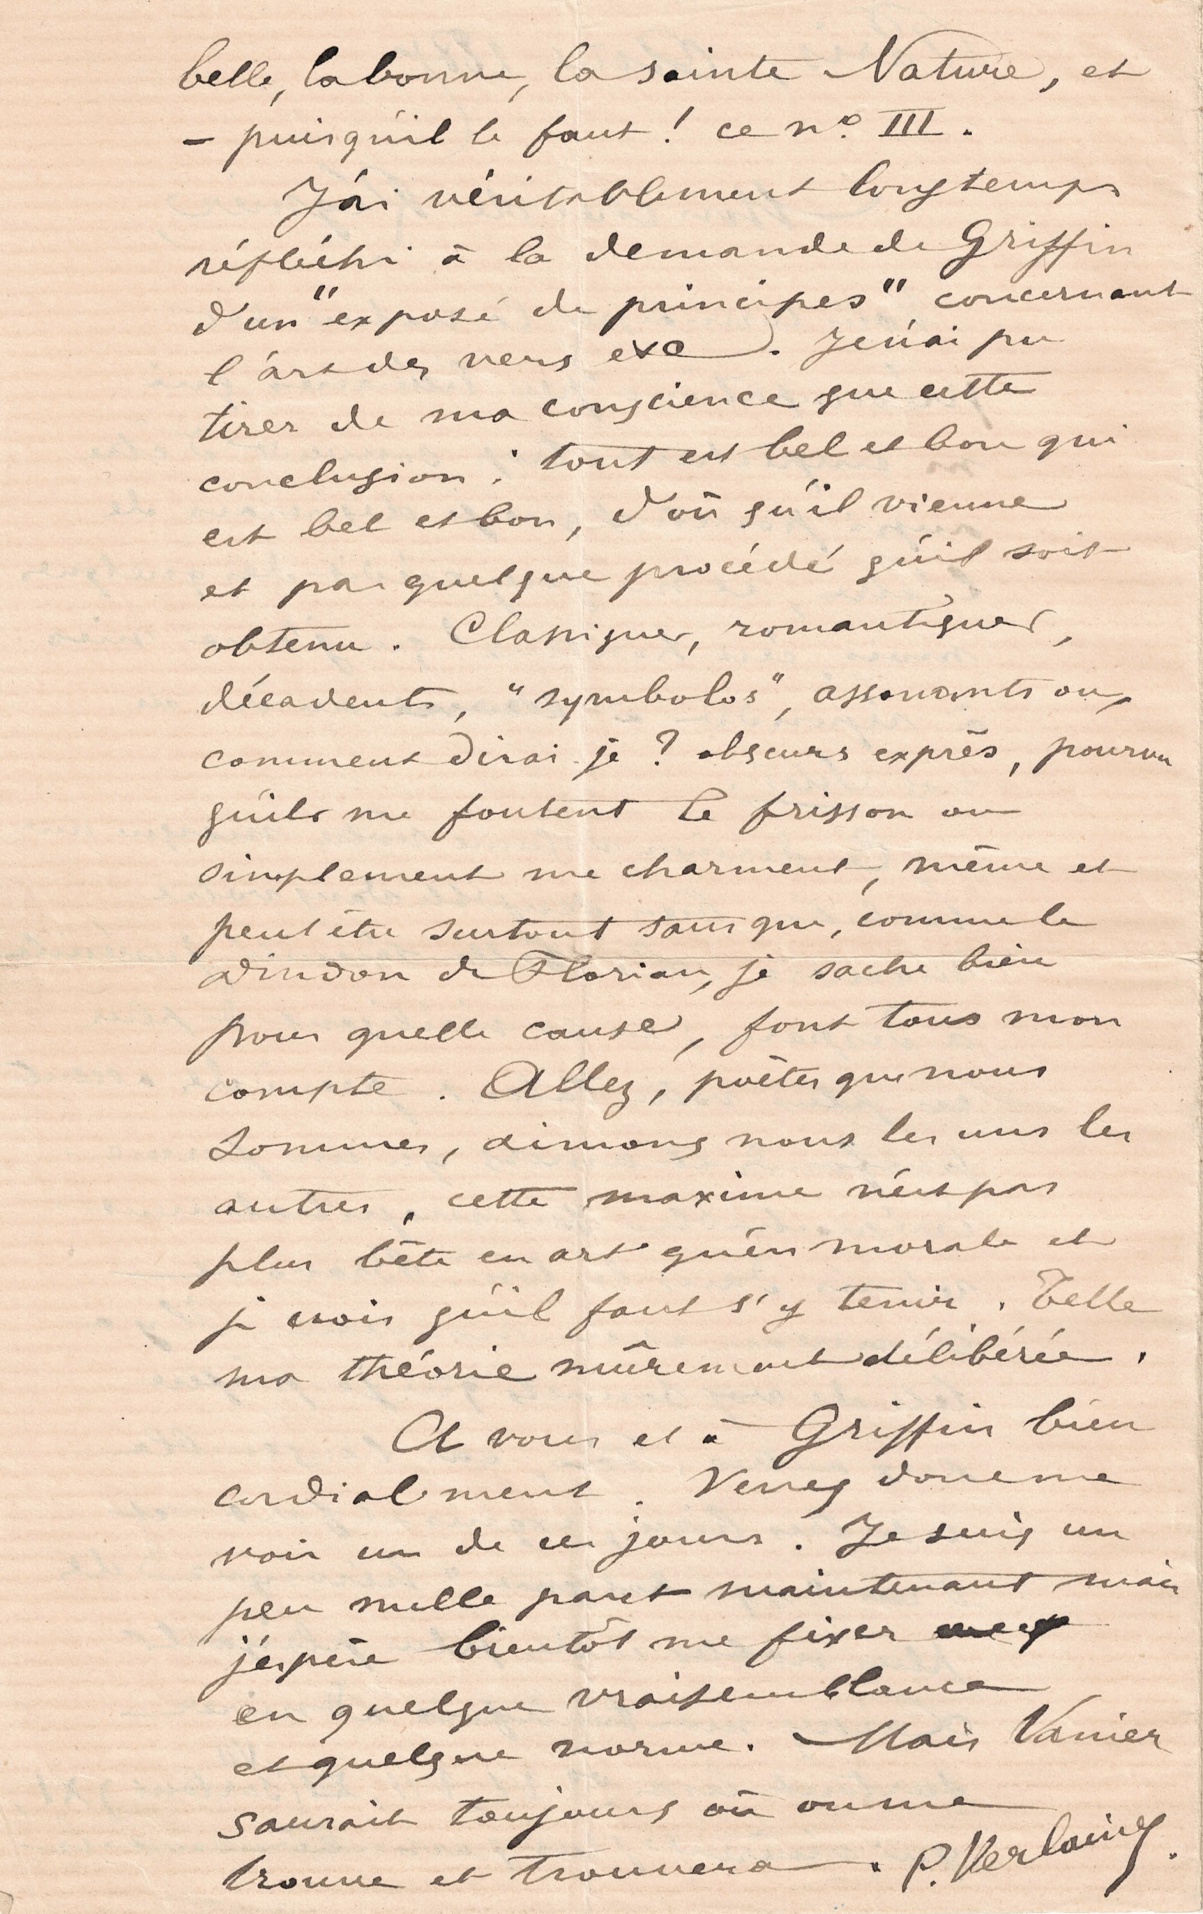 belle, la bonne, la sainte Nature, et
— puisqu'il le faut ! ce nº III.
J'ai véritablement longtemps
réfléchi à la demande de Griffin
d'un "exposé de principes" concernant
l'art des vers etc. Je n'ai pu
tirer de ma conscience que cette
conclusion : tout est bel et bon qui
est bel et bon, d'où qu'il vienne
et par quelque procédé qu'il soit
obtenu. Classiques, romantiques,
décadents, "symbolos", assonants ou,
comment dirai je ? obscurs exprès, pourvu
qu'ils me foutent le frisson ou
simplement me charment, même et
peut être surtout sans que, comme le
dindon de Florian, je sache bien
pour quelle cause, font tous mon
compte. Allez, poètes que nous
sommes, aimons nous les uns les
autres, cette maxime n'est pas
plus bête en art qu'en morale et
je crois qu'il faut s'y tenir. Telle
ma théorie mûrement délibérée.
A vous et à Griffin bien
cordialement. Venez donc me
voir un de ces jours. Je suis un
peu nulle part maintenant mais
j'espère bientôt me fixer
en quelque vraisemblance
et quelque norme. Mais Vanier
saurait toujours où on me
trouve et trouvera. P. Verlaine.